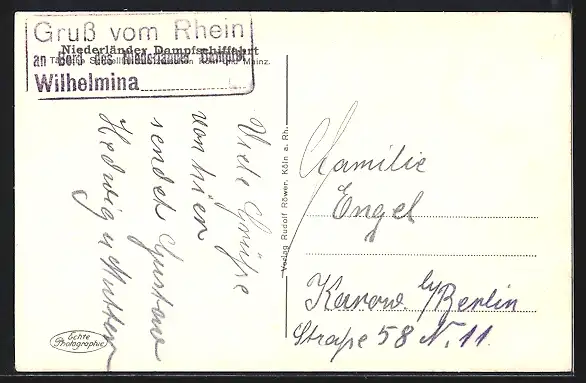 Gruß vom Rhein
Niederländer Dampfschiffahrt
an Bord des Niederländer Dampfer
Wilhelmina
Viele Grüße
von hier
sendet Gustav
Hedwig u Mutter
Echte
Photographie
Verlag Rudolf Röwer, Köln a. Rh.
Familie
Engel
Karow b/Berlin
Straße 58 N. 11.